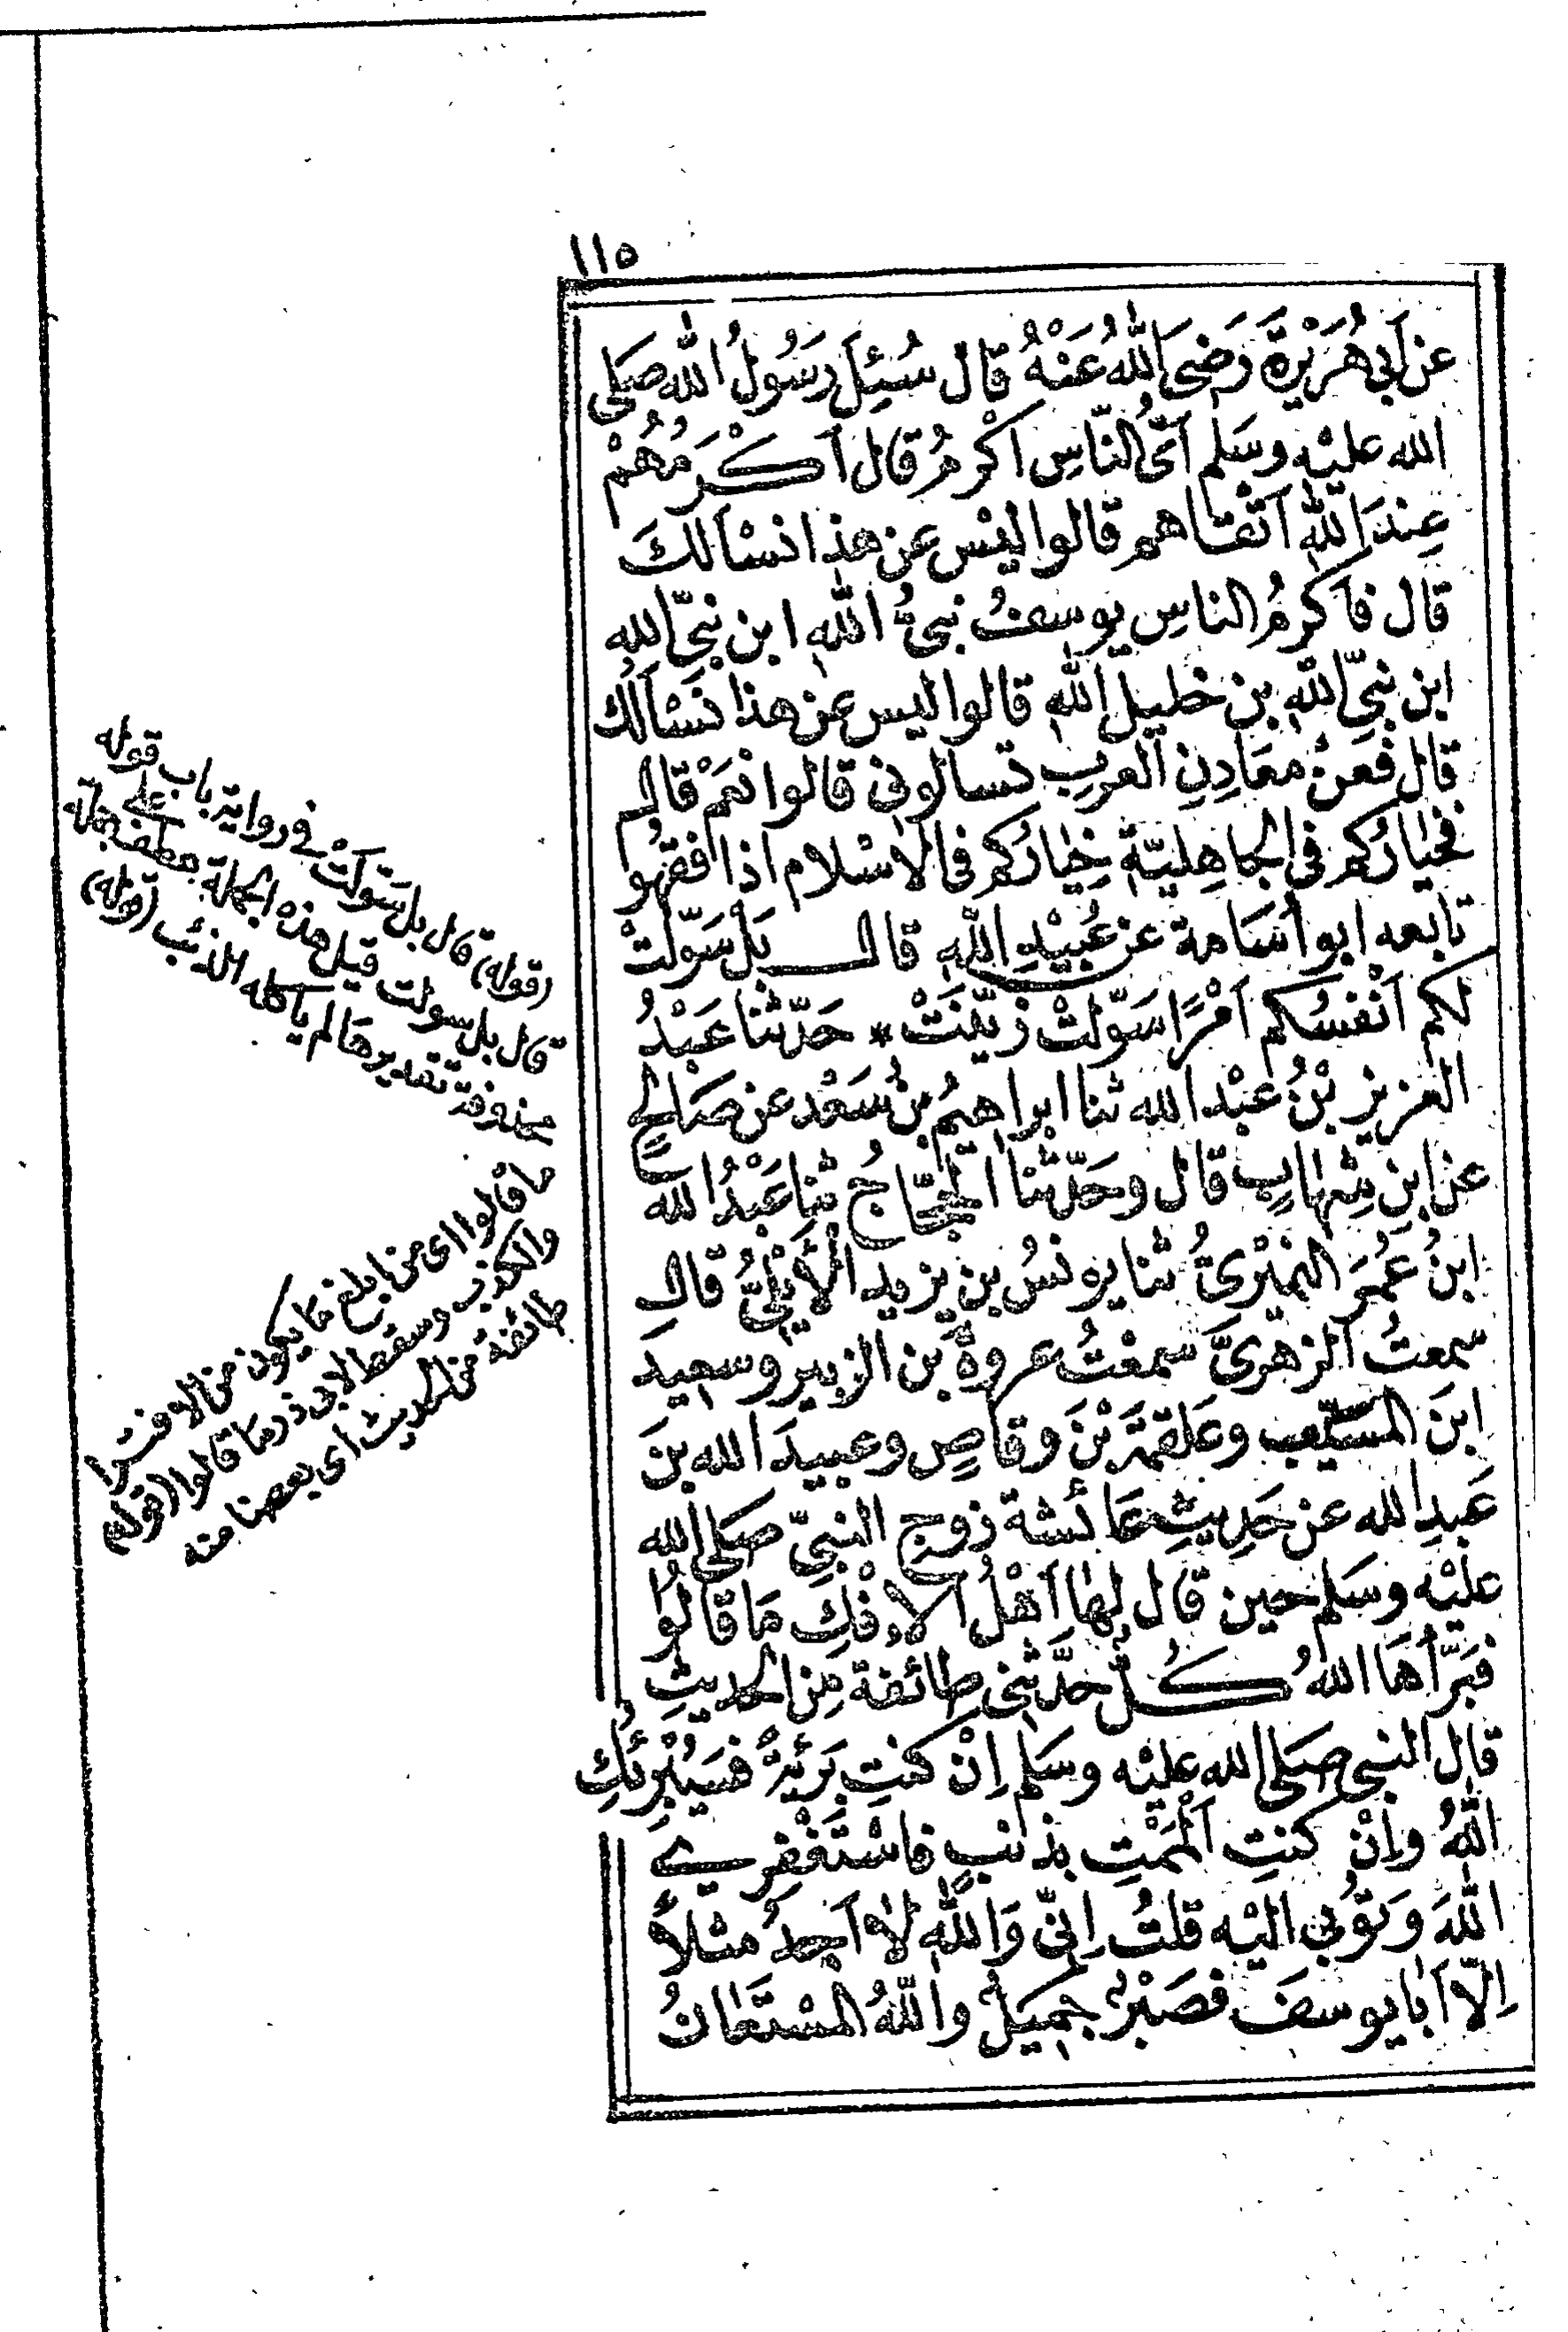 ١١٥
عن اَبى هُرَيْرَةَ رَضىَ اَللهُ عَنْهُ قال سُئِلَ رَسُولُ اللهِ صَلى
الله عليْهِ وسَلم اَىُّ النّاسِ اَكْرمُ قال اَكْرَمُهُمْ
عِندَ اللهِ اَتْقاهم قالوا ليْس عن هذا نسْأَلكَ
قال فاَكرمُ الناسِ يوسفُ نبىُّ اللهِ ابن نبِىّ اللهِ
ابن نبِىّ اللهِ بن خليلِ اللهِ قالوا ليس عن هذا نَسْأَلُك
قال فَعَنْ مَعَادِنِ العربِ تسألونى قالوا نَعَمْ قال
فخيارُكم فى الجاهِليّةِ خِيارُكم فى الاسْلام اذا فقهُوا
تابعه ابو اُسَامة عن عُبيْدِ اللهِ قال بَلْ سَوّلتْ
لكم اَنْفسُكم اَمْرًا سَوّلتْ زَيّنَتْ * حَدّثنا عَبْدُ
العزيز بْنُ عبْد الله ثنا ابراهيمُ بنُ سَعْد عن صَالحٍ
عن ابنِ شِهابٍ قال وحَدّثنا الحجّاجُ ثنا عَبْدُ الله
ابنُ عُمَرَ النميْرىُّ ثنا يونسُ بن يزيد الأَيْلِىُّ قال
سمعتُ الزهرىَّ سمعْتُ عروةَ بن الزبير وسعيدَ
ابنَ المسيّب وعَلقمةَ بْنَ وقاصٍ وعبيدَ الله بنَ
عَبدِ الله عن حَدِيثِ عَائشة زوجِ النبىّ صَلى الله
عليْه وسَلم حين قال لها اَهْلُ الاِفْكِ مَا قالُوا
فبَرّأَهَا اللهُ كُلٌّ حَدَّثنِى طائفة مِن الحديثِ
قال النبى صَلى الله عليْه وسَلم اِنْ كنتِ بَرِيْئةً فسَيُبْرِئكِ
اللهُ واِنْ كنتِ اَلْمَمْتِ بذنبٍ فاسْتَغْفِرى
اللهَ وَتُوبى اليْه قلتُ اِنّى وَاللهِ لا اَجِدُ مثلاً
اِلاّ اَبا يوسفَ فصَبْرٌ جميلٌ واللهُ المسْتَعانُ
(قوله) قال بل سَوّلَتْ فى رواية باب قوله
قال بل سولت قيل هذه الجملة معطوفة على جملة
محذوفة تقديرها لم يأكله الذئب (قوله)
ما قالوا اى من ابلغ ما يكون من الافترا
والكذب وسقط لابى ذر ما قالوا (قوله)
طائفة من الحديث اى بعضا منه